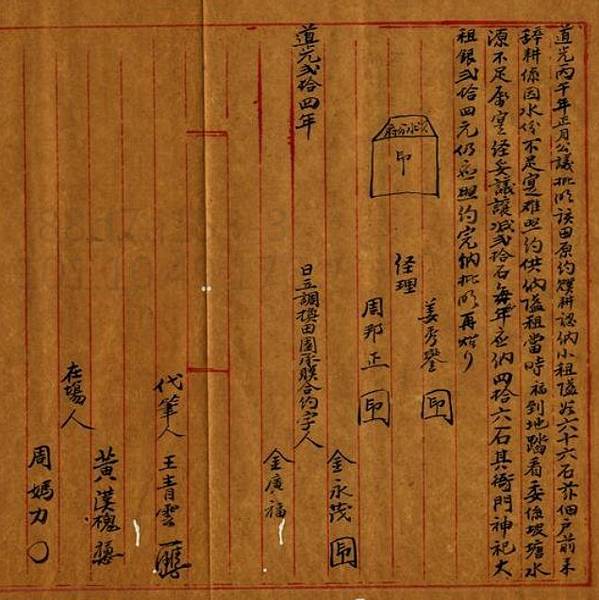 道光丙午年正月公議批明該田原約贌耕認納小租隘谷六十六石茲佃戶前來
辭耕係因水份不足寔難照約供納隘租當時福到地踏看委係坡塘水
源不足屬寔經妥議讓減弍拾石每年應納四拾六石其衙門神祀大
租銀弍拾四元仍應照約完納批明再炤
印
經理
姜秀鑾 印
周邦正 印
道光弍拾四年
日立調換田園承聯合約字人
金永茂 印
金廣福
代筆人 王青雲
在場人
黃漢槐
周媽力 〇